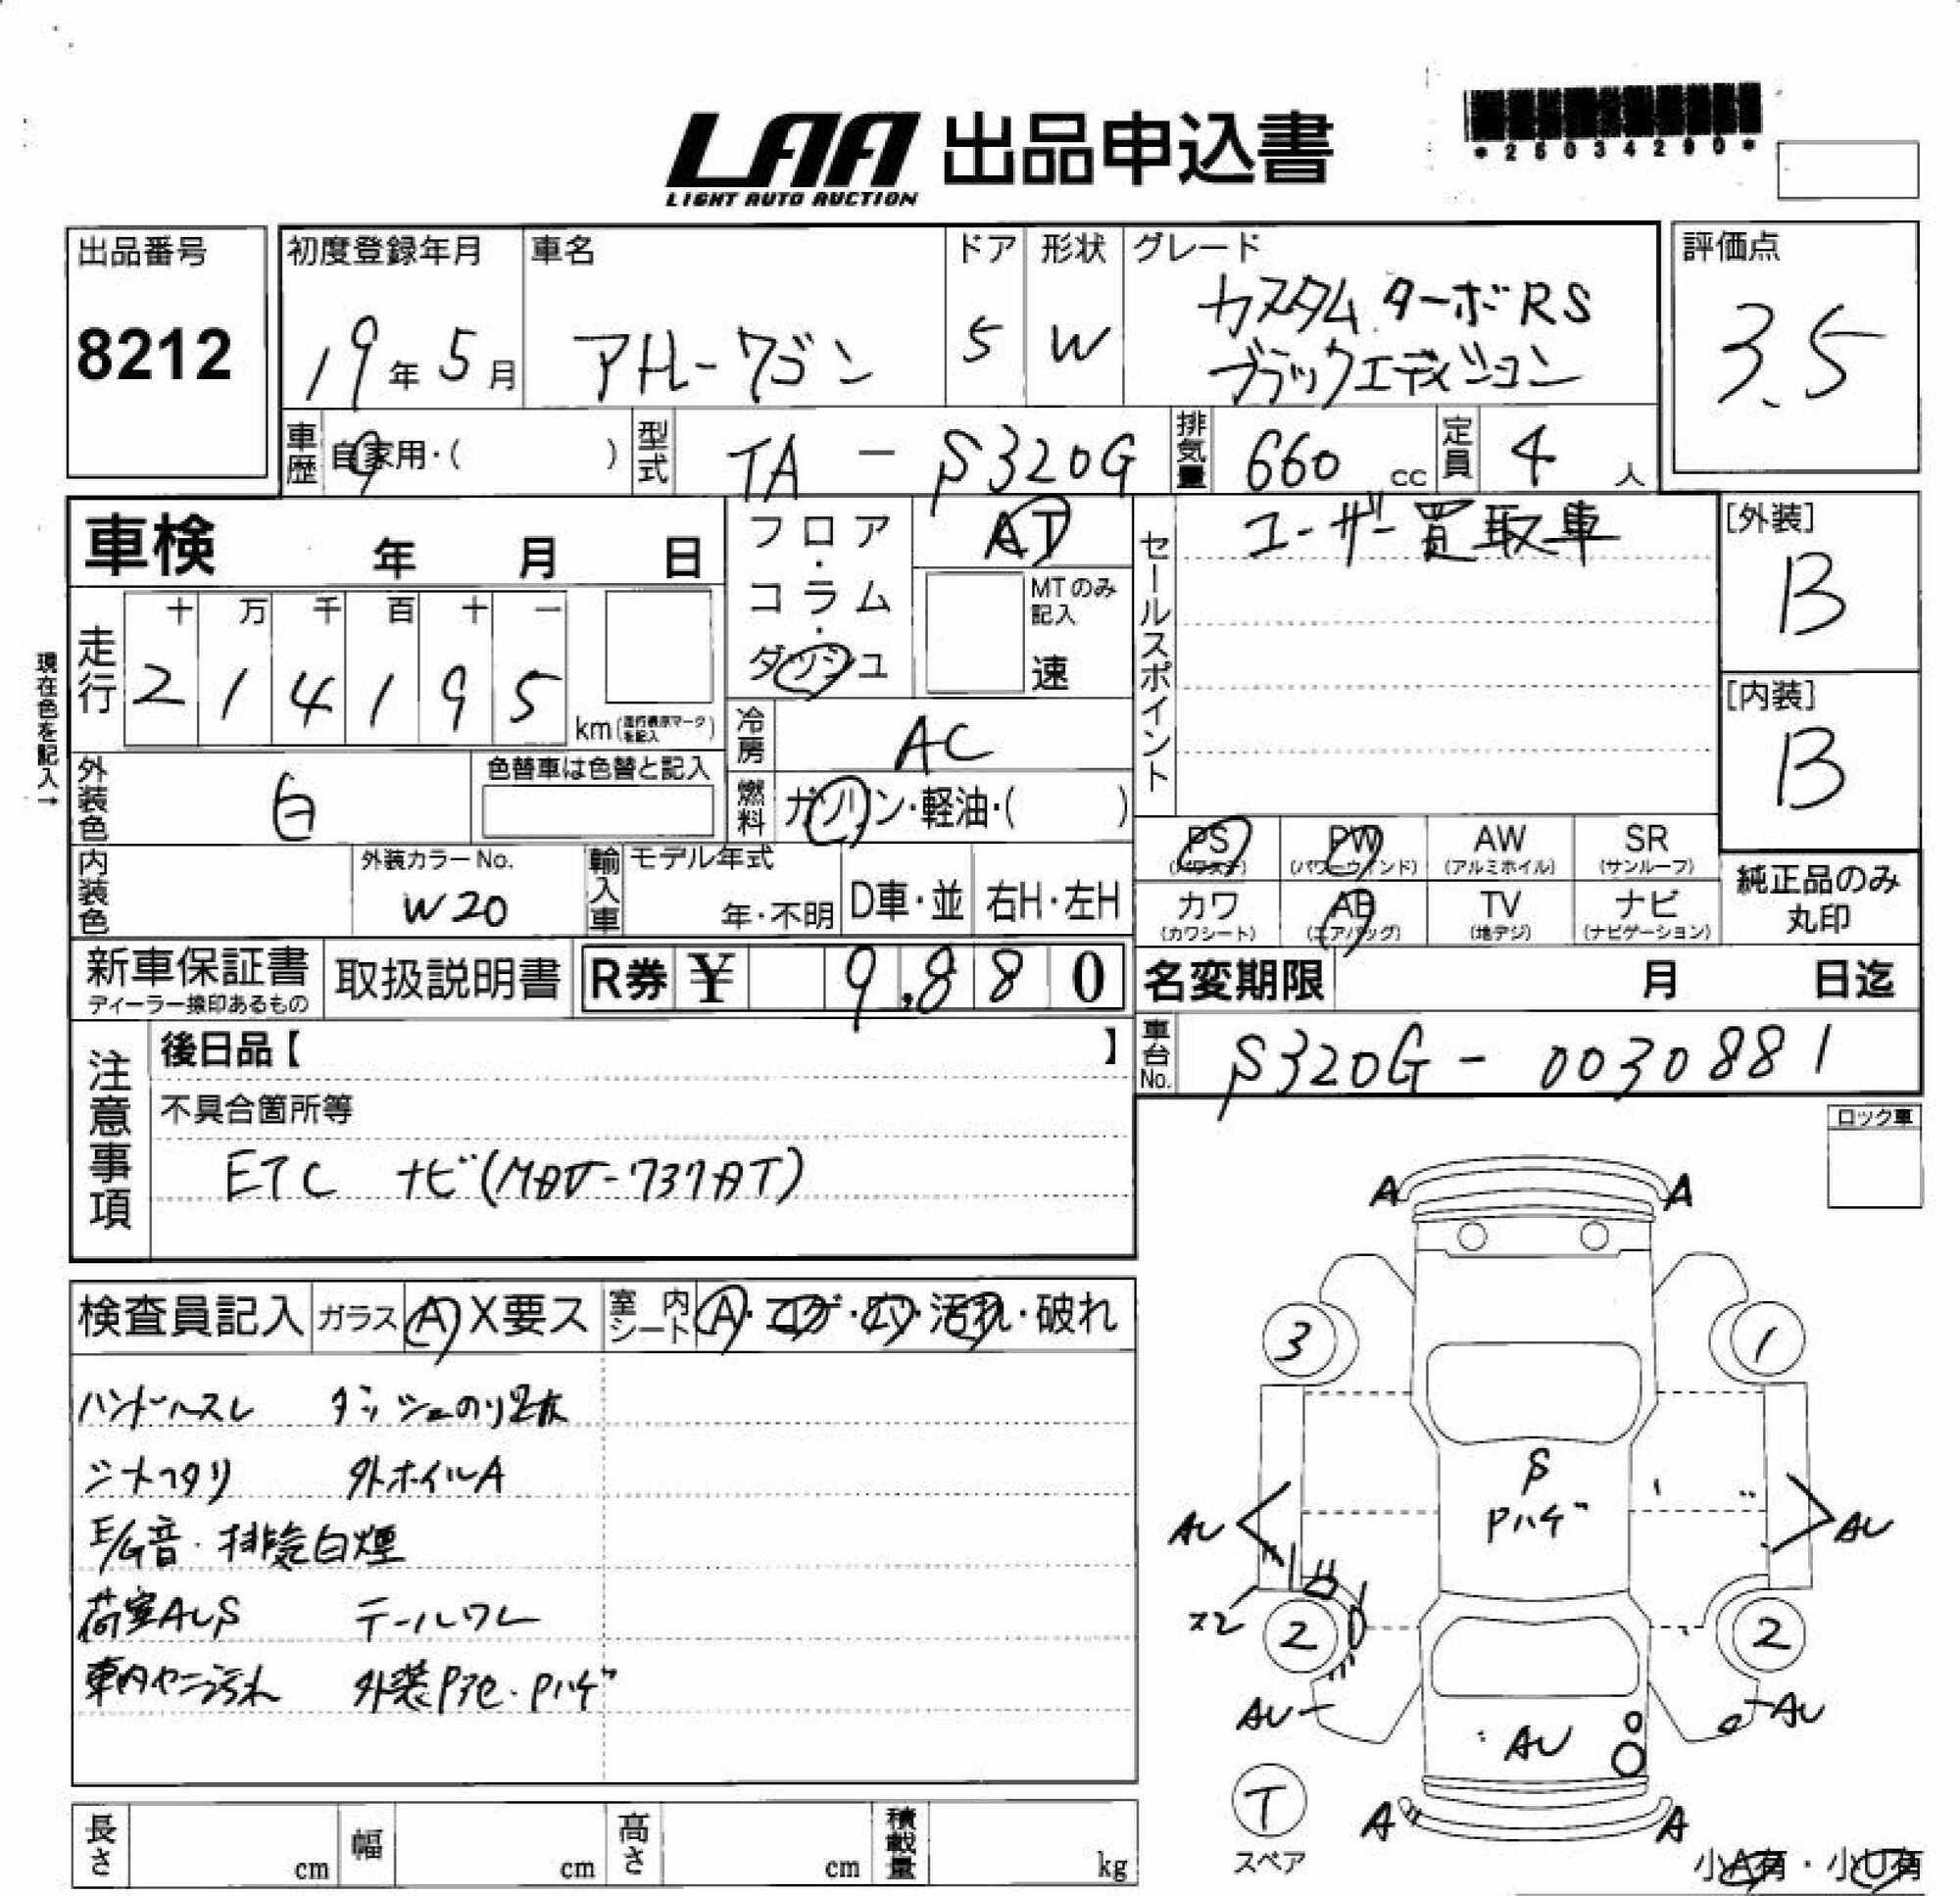 LAA 出品申込書
LIGHT AUTO AUCTION
*25034290*
出品番号
8212
初度登録年月
19年5月
車名
アトレーワゴン
ドア
5
形状
W
グレード
カスタムターボRS
ブラックエディション
評価点
3.5
車歴
自家用・( )
型式
TA-S320G
排気量
660cc
定員
4人
車検 年 月 日
フロア・コラム・ダッシュ
AT
MTのみ記入
速
セールスポイント
ユーザー買取車
[外装]
B
[内装]
B
現在色を記入→
走行
十 万 千 百 十 一
2 1 4 1 9 5
km(走行表示マークを記入)
冷房
AC
外装色
白
色替車は色替と記入
燃料
ガソリン・軽油・( )
PS (パワステ)
PW (パワーウインド)
AW (アルミホイル)
SR (サンルーフ)
カワ (カワシート)
AB (エアバッグ)
TV (地デジ)
ナビ (ナビゲーション)
純正品のみ
丸印
内装色
外装カラーNo.
W20
輸入車
モデル年式
年・不明
D車・並
右H・左H
新車保証書
ディーラー捺印あるもの
取扱説明書
R券 ¥ 9,880
名変期限 月 日迄
車台No.
S320G-0030881
注意事項
後日品【 】
不具合箇所等
ETC ナビ(MAX-737DT)
ロック車
検査員記入
ガラス
A X要ス
室内シート
A・コゲ・穴・汚れ・破れ
ハンドルスレ ダッシュのり跡
シートヘタリ 外ホイルA
E/G音・排気白煙
荷室AUS テールワレ
車内ヤニ汚れ 外装Pアセ・Pハゲ
A A
3 1
S
Pハゲ
AU AU
X2
2 2
AU AU
AU
T
スペア
A A
小A有・小U有
長さ cm
幅 cm
高さ cm
積載量 kg